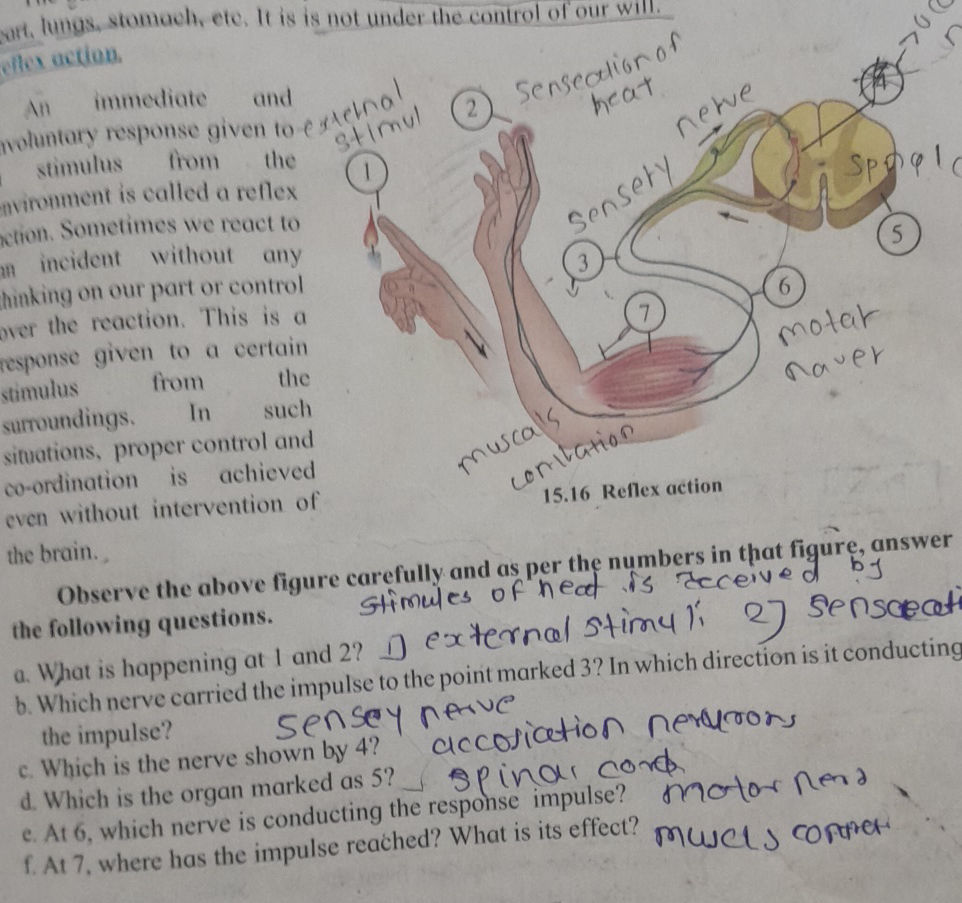 eart, lungs, stomach, etc. It is is not under the control of our will.
eflex action.
An immediate and
nvoluntary response given to
stimulus from the
nvironment is called a reflex
ction. Sometimes we react to
an incident without any
thinking on our part or control
over the reaction. This is a
response given to a certain
stimulus from the
surroundings. In such
situations, proper control and
co-ordination is achieved
even without intervention of
the brain.
external
stimul
1
2
sensecation of
heat
nerve
sensery
3
4
5
6
motar
naver
7
muscals
15.16 Reflex action
Observe the above figure carefully and as per the numbers in that figure, answer
the following questions.
stimules of heat is received by
a. What is happening at 1 and 2? 1) external stimuli 2)
b. Which nerve carried the impulse to the point marked 3? In which direction is it conducting
the impulse? sensey nerve
c. Which is the nerve shown by 4? accosication
d. Which is the organ marked as 5? spinar cord
e. At 6, which nerve is conducting the response impulse? motor
f. At 7, where has the impulse reached? What is its effect?